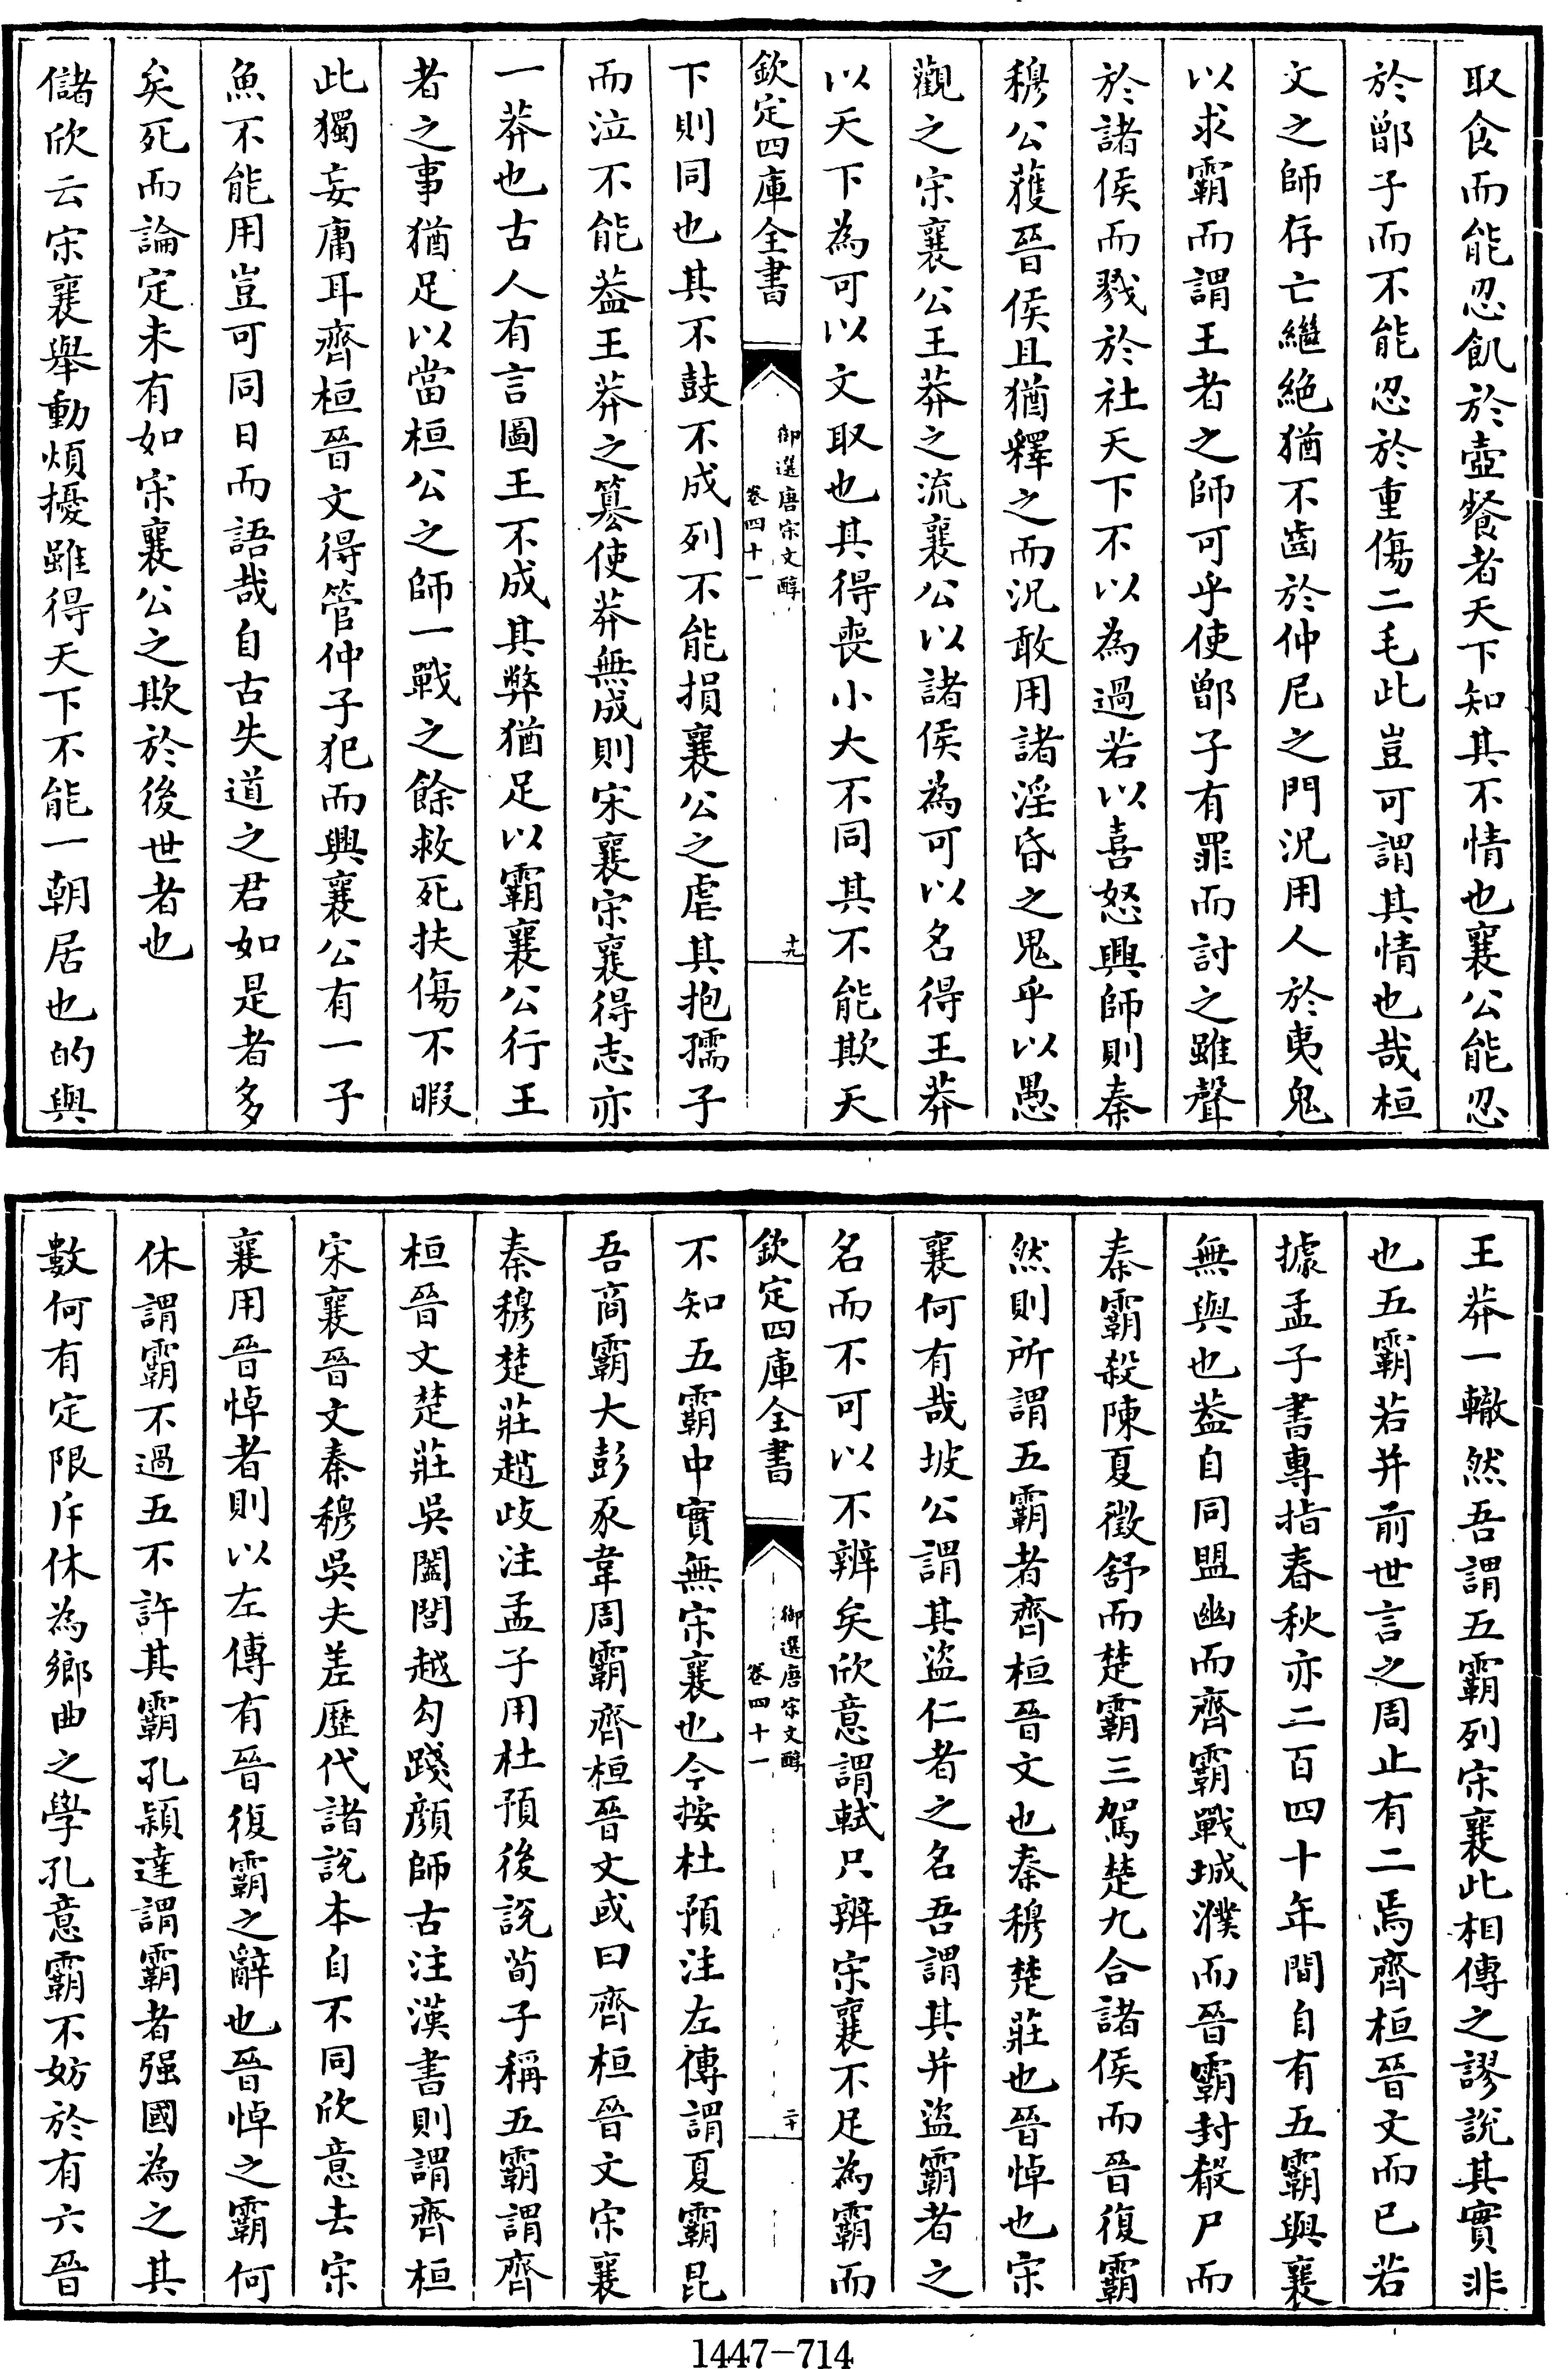 取食而能忍飢於壺餐者天下知其不情也襄公能忍
於鄫子而不能忍於重傷二毛此豈可謂其情也哉桓
文之師存亡繼絶猶不齒於仲尼之門況用人於夷鬼
以求霸而謂王者之師可乎使鄫子有罪而討之雖聲
於諸侯而戮於社天下不以為過若以喜怒興師則秦
穆公獲晉侯且猶釋之而況敢用諸淫昏之鬼乎以愚
觀之宋襄公王莽之流襄公以諸侯為可以名得王莽
以天下為可以文取也其得喪小大不同其不能欺天
欽定四庫全書
御選唐宋文醇
卷四十一
十九
下則同也其不鼓不成列不能損襄公之虐其抱孺子
而泣不能葢王莽之簒使莽無成則宋襄宋襄得志亦
一莽也古人有言圖王不成其弊猶足以霸襄公行王
者之事猶足以當桓公之師一戰之餘救死扶傷不暇
此獨妄庸耳齊桓晉文得管仲子犯而興襄公有一子
魚不能用豈可同日而語哉自古失道之君如是者多
矣死而論定未有如宋襄公之欺於後世者也
儲欣云宋襄舉動煩擾雖得天下不能一朝居也的與
王莽一轍然吾謂五霸列宋襄此相傳之謬說其實非
也五霸若并前世言之周止有二焉齊桓晉文而已若
據孟子書專指春秋亦二百四十年間自有五霸與襄
無與也葢自同盟幽而齊霸戰城濮而晉霸封殽尸而
秦霸殺陳夏徵舒而楚霸三駕楚九合諸侯而晉復霸
然則所謂五霸者齊桓晉文也秦穆楚莊也晉悼也宋
襄何有哉坡公謂其盜仁者之名吾謂其并盜霸者之
名而不可以不辨矣欣意謂軾只辨宋襄不足為霸而
欽定四庫全書
御選唐宋文醇
卷四十一
二十
不知五霸中實無宋襄也今按杜預注左傳謂夏霸昆
吾商霸大彭豕韋周霸齊桓晉文或曰齊桓晉文宋襄
秦穆楚莊趙岐注孟子用杜預後說荀子稱五霸謂齊
桓晉文楚莊吳闔閭越勾踐顔師古注漢書則謂齊桓
宋襄晉文秦穆吳夫差歷代諸說本自不同欣意去宋
襄用晉悼者則以左傳有晉復霸之辭也晉悼之霸何
休謂霸不過五不許其霸孔穎達謂霸者强國為之其
數何有定限斥休為鄉曲之學孔意霸不妨於有六晉
1447-714